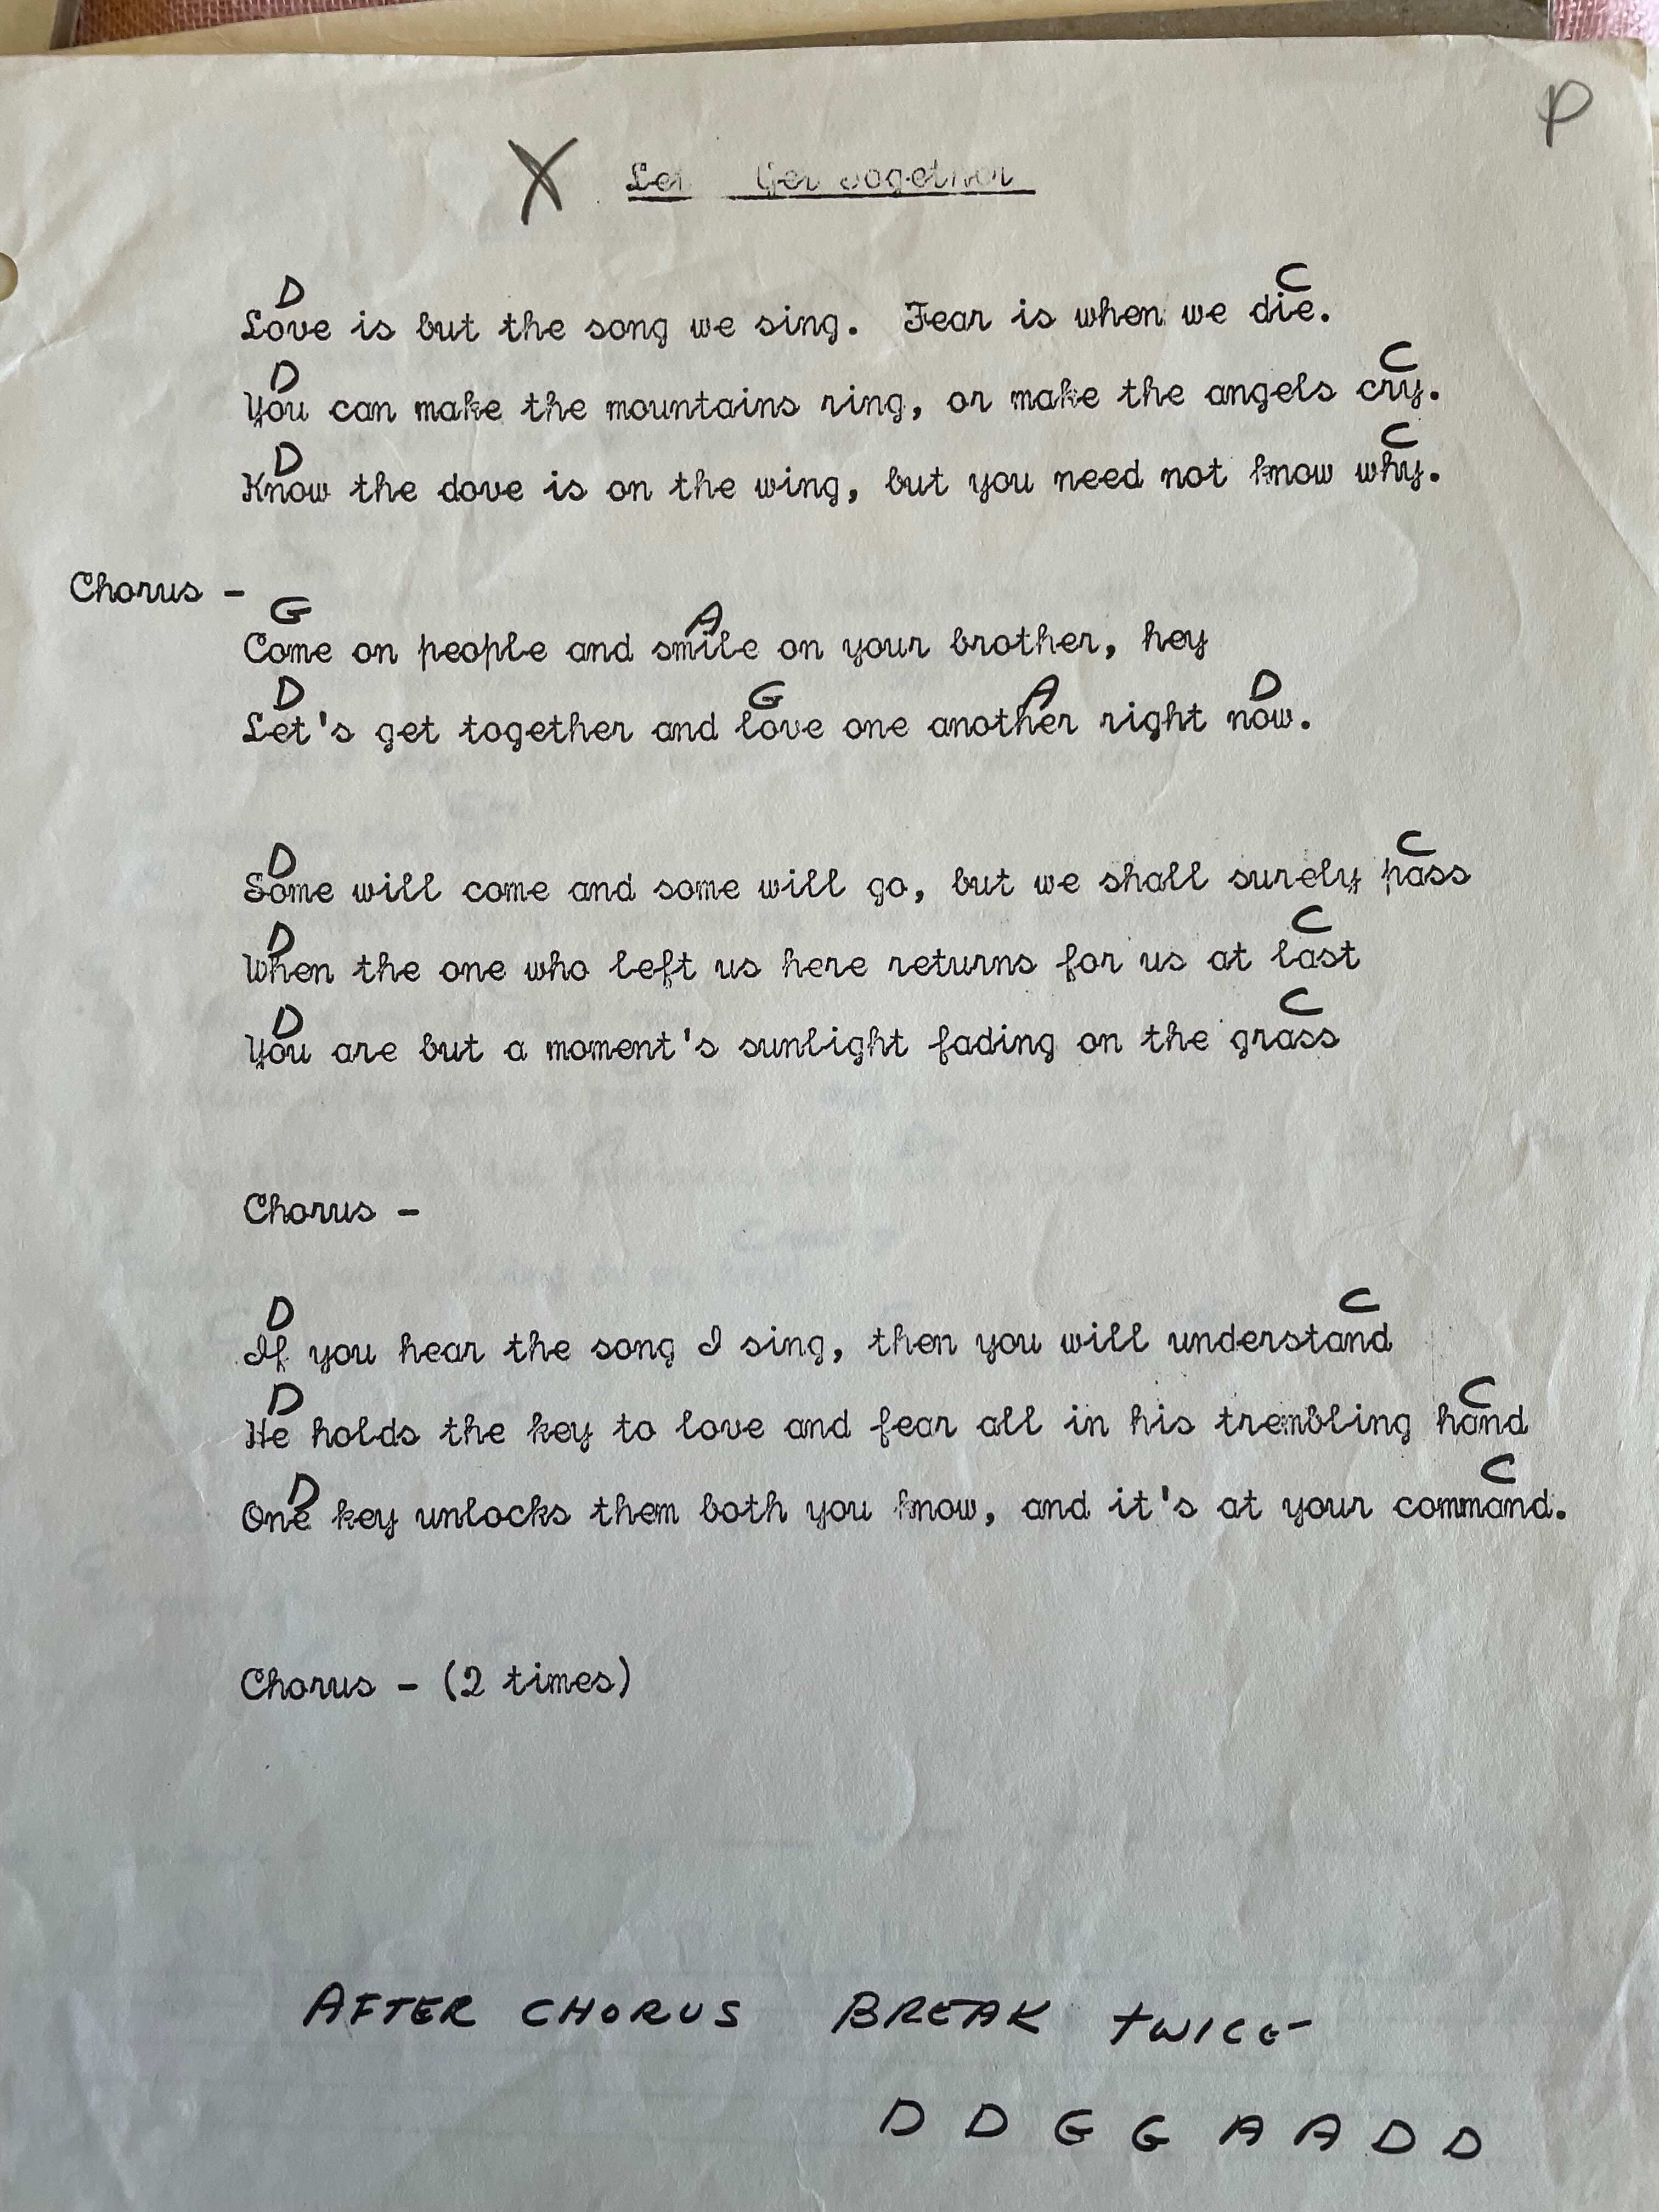 X Get Together
P
D C
Love is but the song we sing. Fear is when we die.
D C
You can make the mountains ring, or make the angels cry.
D C
Know the dove is on the wing, but you need not know why.
Chorus -
G A
Come on people and smile on your brother, hey
D G A D
Let's get together and love one another right now.
D C
Some will come and some will go, but we shall surely pass
D C
When the one who left us here returns for us at last
D C
You are but a moment's sunlight fading on the grass
Chorus -
D C
If you hear the song I sing, then you will understand
D C
He holds the key to love and fear all in his trembling hand
D C
One key unlocks them both you know, and it's at your command.
Chorus - (2 times)
AFTER CHORUS BREAK TWICE
D D G G A A D D